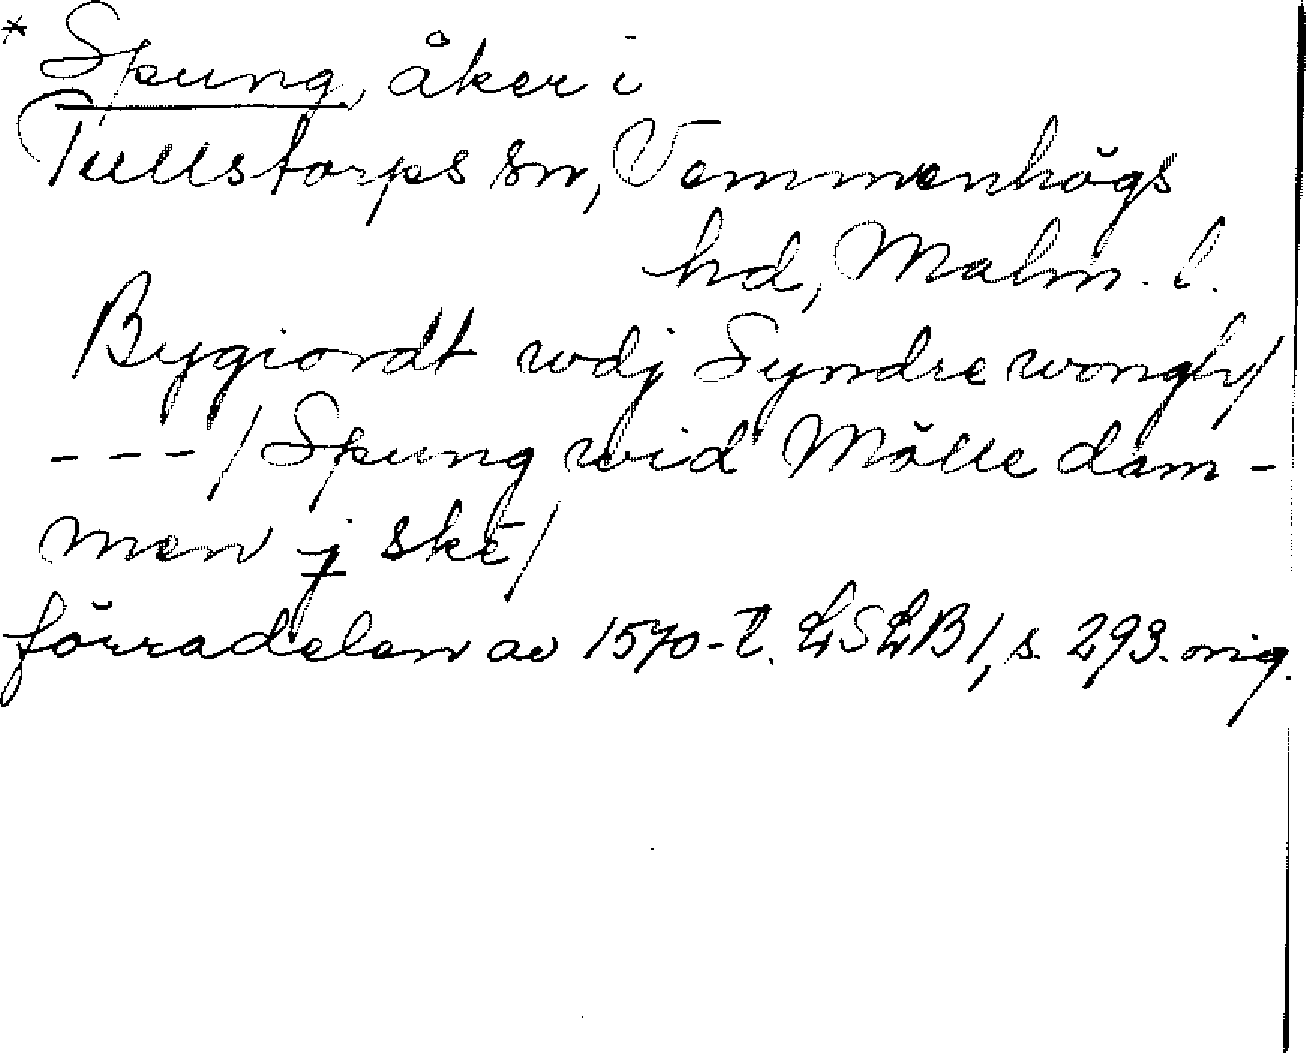 * Spung, åker i
Tullstorps sn, Vemmenhögs
hd, Malm. l.
Bygiordt wdj Syndre wongh/
---/ Spung wid Mölle dam-
men j ske/
förra delen av 1570-t. LSLB 1, s. 293. orig.